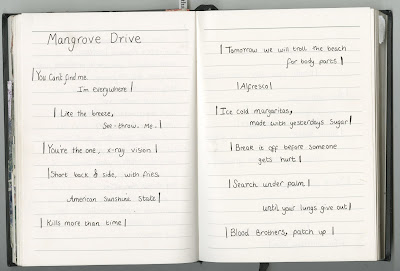 Mangrove Drive
| You Can't find me
I'm Everywhere |
| Like the breeze,
See-throw. Me. |
| You're the one, x-ray vision |
| Short back & side, with fries
American Sunshine State |
| Kills more than time |
| Tomorrow we will troll the beach
for body parts |
| Alfresco |
| Ice cold margaritas,
made with yesterdays sugar |
| Break it off before someone
gets hurt |
| Search under palm |
until your lungs give out |
| Blood Brothers, patch up |